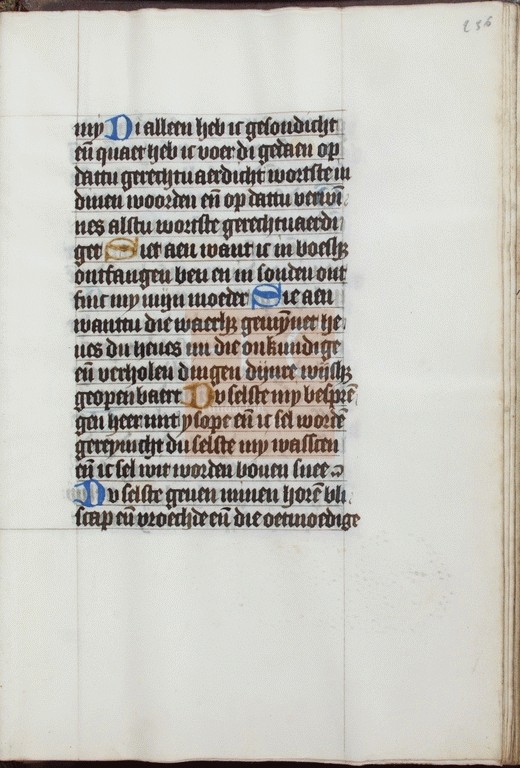 236
my Di alleen heb ic gesondicht
en̄ quaet heb ic voer di gedaen op
dattu gerechtuaerdicht wortste in
dinen woorden en̄ op dattu verwin̄
nes alstu wortste gerechtuaerdi
get Siet aen want ic in boesh
ontfangen ben en in sonden ont
finc my mijn moeder Sie aen
wantu die waerh gemȳnet he
ues du heues mi die onkundige
en̄ verholen dingen dijnre wijsh
geopenbaert Du selste my besprē
gen heer mit ysope en̄ ic sel wordē
gereynicht du selste my wasscen
en̄ ic sel wit worden bouen snee
Du selste geuen minen horē bli
scap en̄ vroechde en̄ die oetmoedige